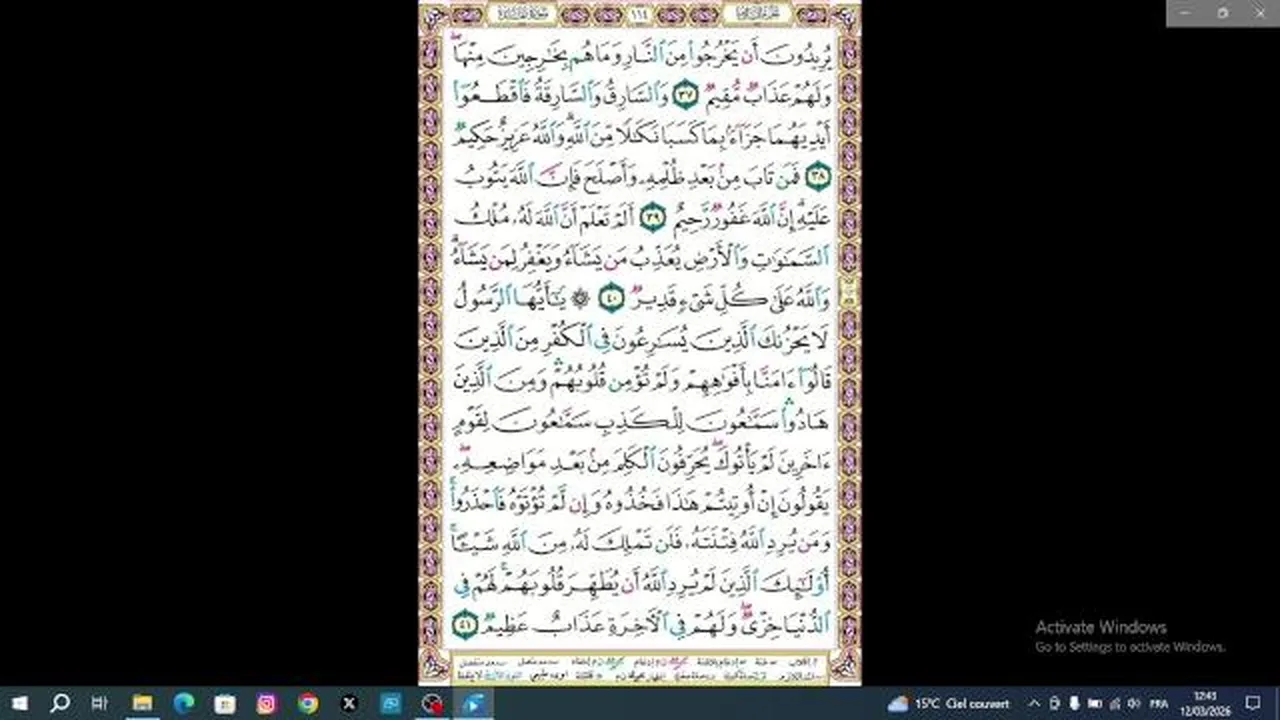 سورة المائدة ١١٤ الجزء السادس
يُرِيدُونَ أَن يَخْرُجُوا۟ مِنَ ٱلنَّارِ وَمَا هُم بِخَٰرِجِينَ مِنْهَا ۖ
وَلَهُمْ عَذَابٌ مُّقِيمٌ ٣٧ وَٱلسَّارِقُ وَٱلسَّارِقَةُ فَٱقْطَعُوٓا۟
أَيْدِيَهُمَا جَزَآءًۢ بِمَا كَسَبَا نَكَٰلًا مِّنَ ٱللَّهِ ۗ وَٱللَّهُ عَزِيزٌ حَكِيمٌ
٣٨ فَمَن تَابَ مِنۢ بَعْدِ ظُلْمِهِۦ وَأَصْلَحَ فَإِنَّ ٱللَّهَ يَتُوبُ
عَلَيْهِ ۗ إِنَّ ٱللَّهَ غَفُورٌ رَّحِيمٌ ٣٩ أَلَمْ تَعْلَمْ أَنَّ ٱللَّهَ لَهُۥ مُلْكُ
ٱلسَّمَٰوَٰتِ وَٱلْأَرْضِ يُعَذِّبُ مَن يَشَآءُ وَيَغْفِرُ لِمَن يَشَآءُ ۗ
وَٱللَّهُ عَلَىٰ كُلِّ شَىْءٍ قَدِيرٌ ٤٠ ۞ يَٰٓأَيُّهَا ٱلرَّسُولُ
لَا يَحْزُنكَ ٱلَّذِينَ يُسَٰرِعُونَ فِى ٱلْكُفْرِ مِنَ ٱلَّذِينَ
قَالُوٓا۟ ءَامَنَّا بِأَفْوَٰهِهِمْ وَلَمْ تُؤْمِن قُلُوبُهُمْ ۛ وَمِنَ ٱلَّذِينَ
هَادُوا۟ ۛ سَمَّٰعُونَ لِلْكَذِبِ سَمَّٰعُونَ لِقَوْمٍ
ءَاخَرِينَ لَمْ يَأْتُوكَ ۖ يُحَرِّفُونَ ٱلْكَلِمَ مِنۢ بَعْدِ مَوَاضِعِهِۦ ۖ
يَقُولُونَ إِنْ أُوتِيتُمْ هَٰذَا فَخُذُوهُ وَإِن لَّمْ تُؤْتَوْهُ فَٱحْذَرُوا۟ ۚ
وَمَن يُرِدِ ٱللَّهُ فِتْنَتَهُۥ فَلَن تَمْلِكَ لَهُۥ مِنَ ٱللَّهِ شَيْـًٔا ۚ
أُو۟لَٰٓئِكَ ٱلَّذِينَ لَمْ يُرِدِ ٱللَّهُ أَن يُطَهِّرَ قُلُوبَهُمْ ۚ لَهُمْ فِى
ٱلدُّنْيَا خِزْىٌ ۖ وَلَهُمْ فِى ٱلْءَاخِرَةِ عَذَابٌ عَظِيمٌ ٤١
Activate Windows
Go to Settings to activate Windows.
15°C Ciel couvert
FRA
12:43
12/03/2026